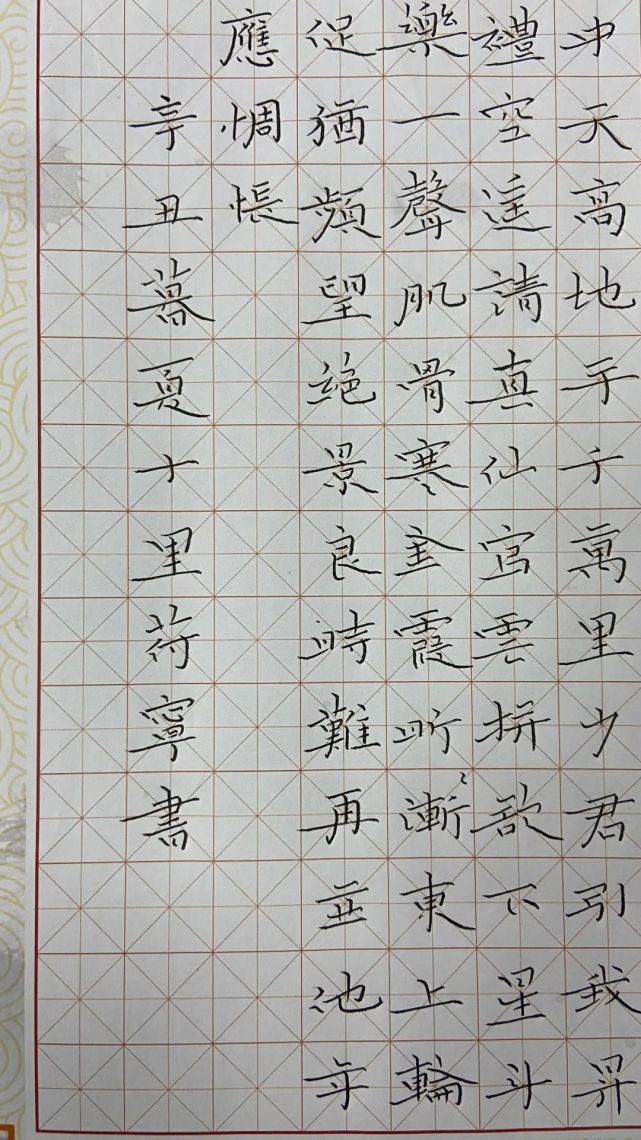 冲天高地平千萬里少君引我昇
禮空遥請真仙官雲拼欲下星斗
樂一聲肌骨寒金霞昕〻漸東上輪
促猶頻望絶景良時難再並池年
應惆悵
辛丑暮夏十里荷寧書